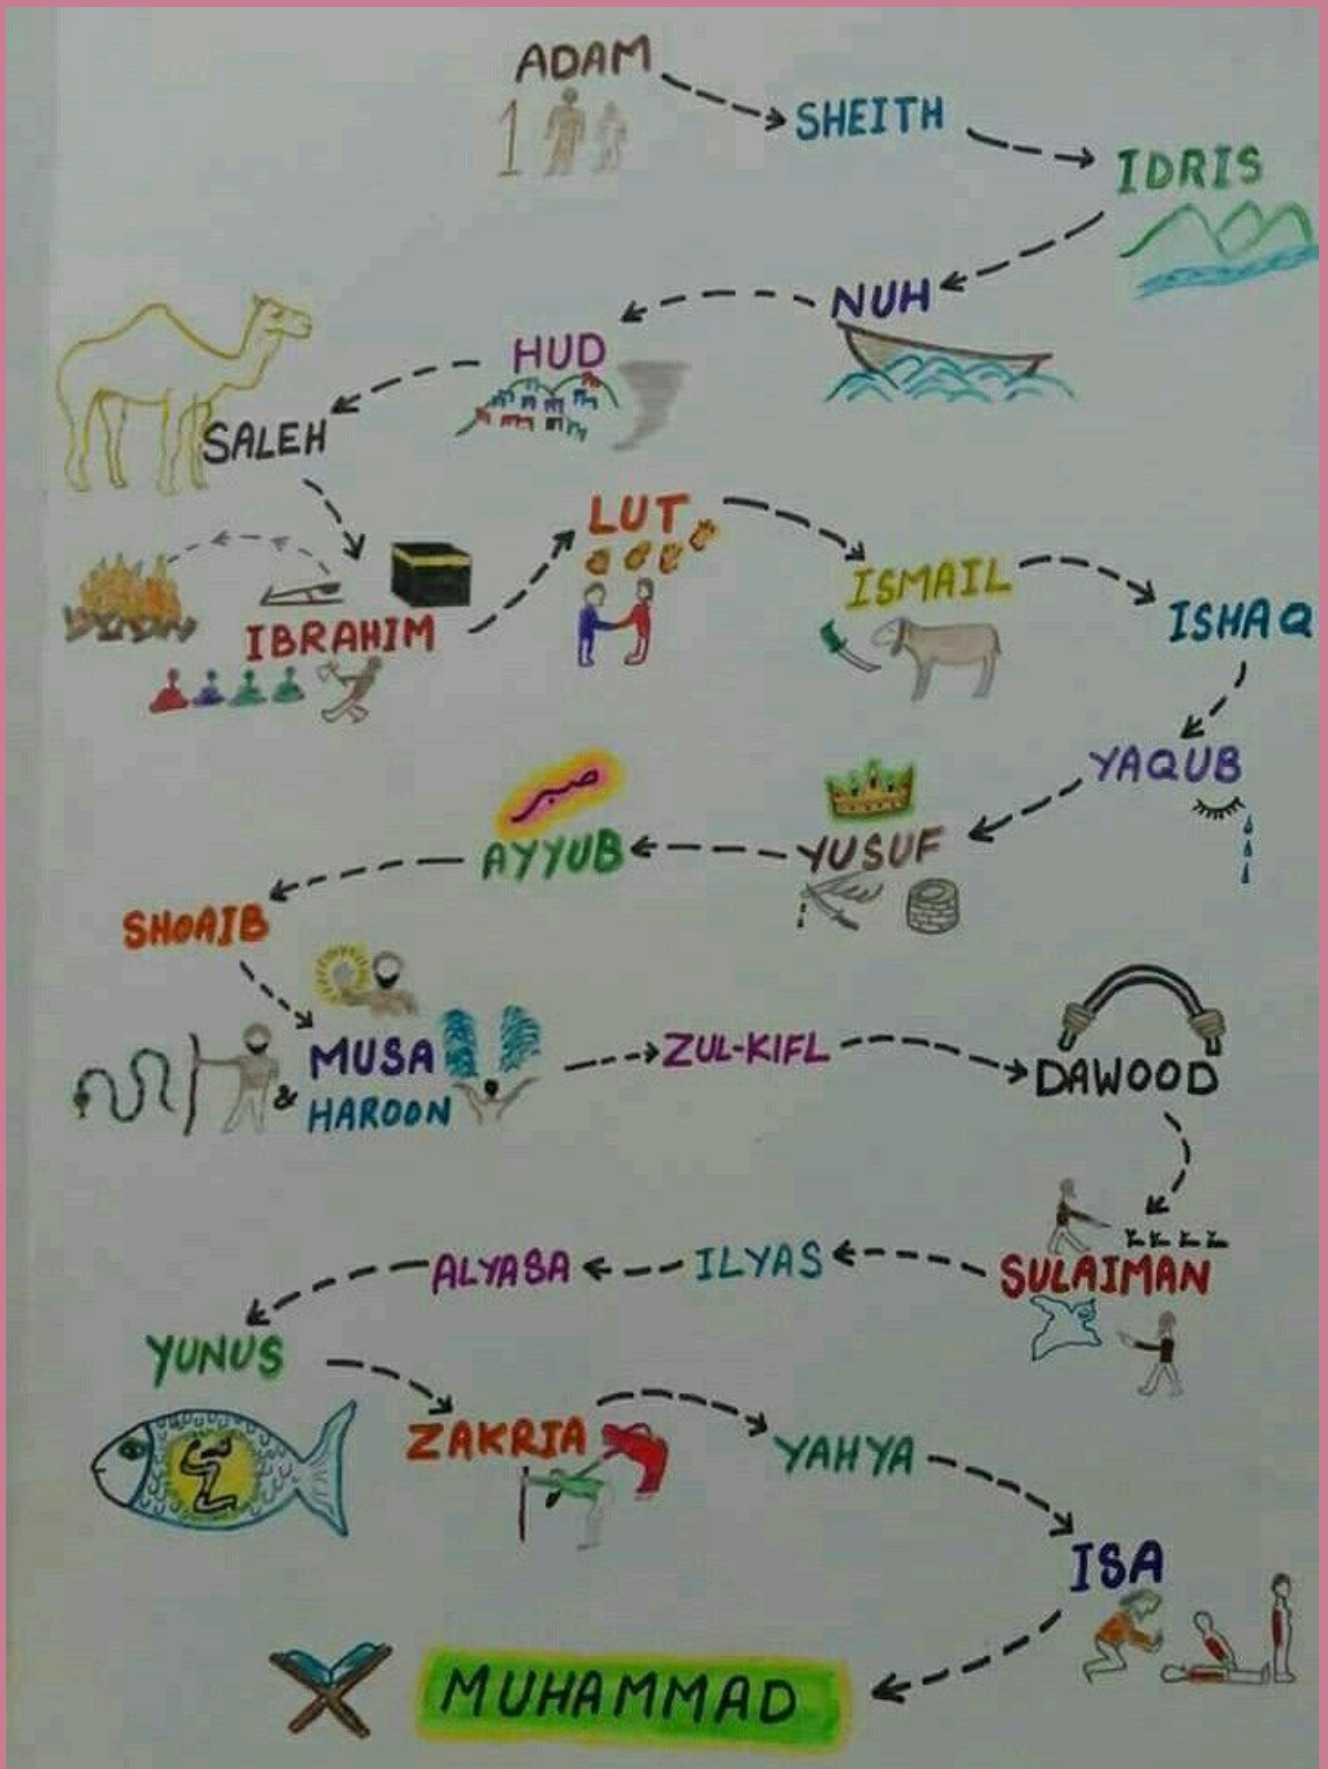 ADAM
1
SHEITH
IDRIS
NUH
HUD
SALEH
IBRAHIM
LUT
ISMAIL
ISHAQ
YAQUB
YUSUF
صبر
AYYUB
SHOAIB
MUSA
&
HAROON
ZUL-KIFL
DAWOOD
SULAIMAN
ILYAS
ALYASA
YUNUS
ZAKRIA
YAHYA
ISA
MUHAMMAD